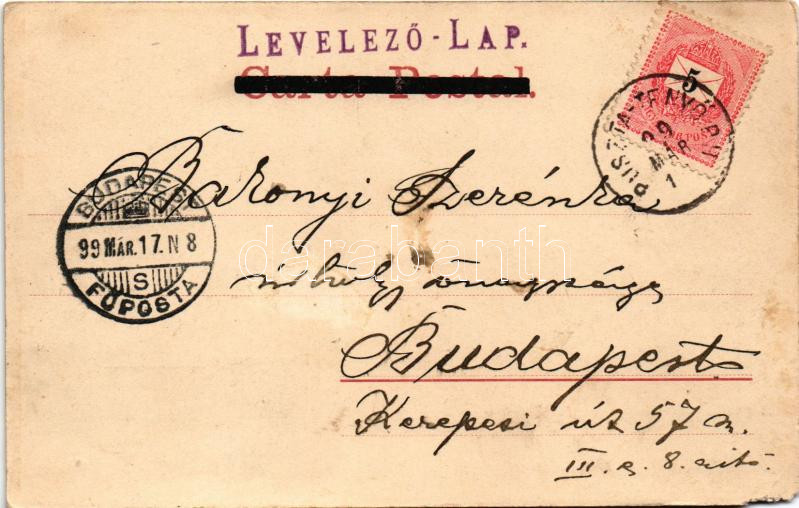 LEVELEZŐ-LAP.
Carta Postal.
5
PUSZTA-TENYŐ P.U.
99
MÁR
1
Baronyi Szerénke
úrhölgy őnagysága
Budapest
BUDAPEST
99 MÁR. 17. N 8
S
FŐPOSTA
Kerepesi út 57 a.
III. e. 8. ajtó.
darabanth